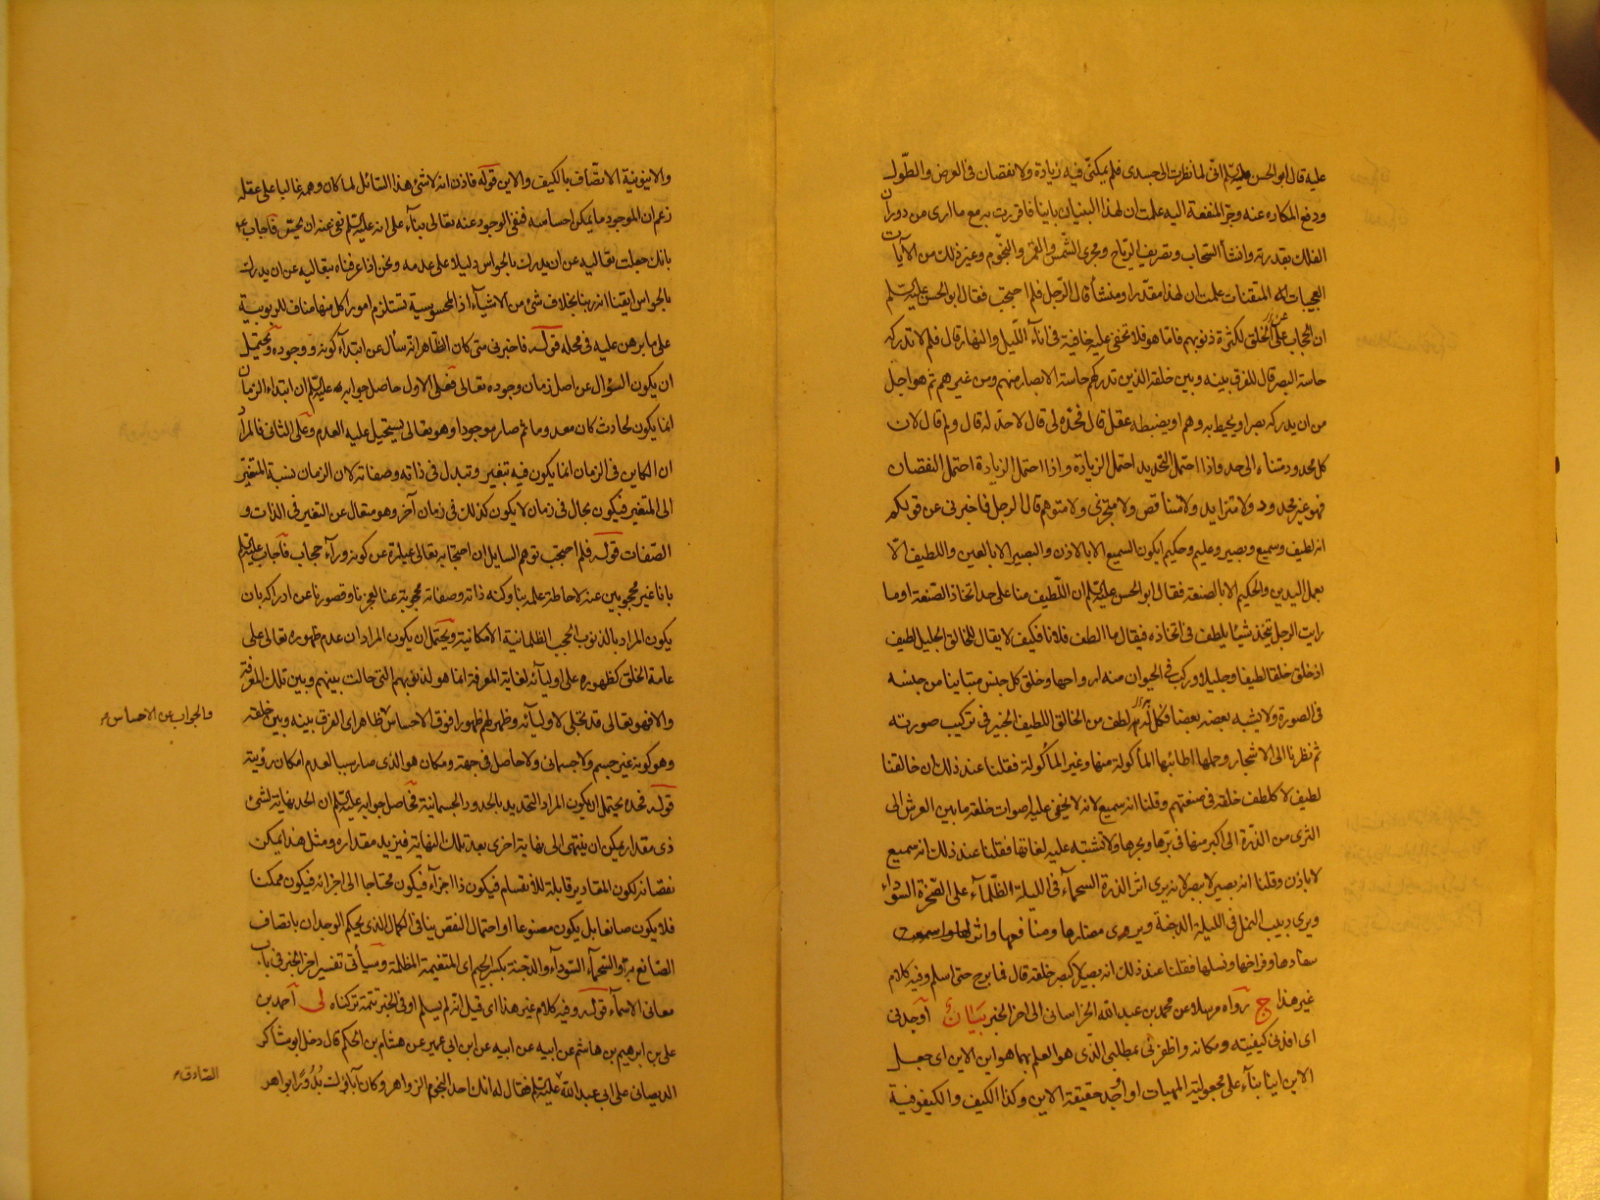 عليه قال ابو الحسن عليه السلم اني لما نظرت الى جسدي فلم يمكني فيه زيادة ولا نقصان في العرض والطول
ودفع المكاره عنه وجر المنفعة اليه علمت ان لهذا البنيان بانيا فاقررت به مع ما ارى من دوران
الفلك بقدرته وانشأ السحاب وتصريف الرياح ومجرى الشمس والقمر والنجوم وغير ذلك من الآيات
العجيبات المتقنات علمت ان لهذا مقدرا ومنشأ قال الرجل فلم احتجب فقال ابو الحسن عليه السلم
ان الحجاب عن الخلق لكثرة ذنوبهم فاما هو فلا تخفى عليه خافية في اناء الليل والنهار قال فلم لا تدركه
حاسة البصر قال للفرق بينه وبين خلقه الذين تدركهم حاسة الابصار منهم ومن غيرهم ثم هو اجل
من ان يدركه بصر او يحيط به وهم او يضبطه عقل قال فحده لي قال لا حد له قال ولم قال لان
كل محدود متناه الى حد واذا احتمل التحديد احتمل الزيادة واذا احتمل الزيادة احتمل النقصان
فهو غير محدود ولا متزايد ولا متناقص ولا متجزئ ولا متوهم قال الرجل فاخبرني عن قولكم
انه لطيف وسميع وبصير وعليم وحكيم ايكون السميع الا بالاذن والبصير الا بالعين واللطيف الا
بعمل اليدين والحكيم الا بالصنعة فقال ابو الحسن عليه السلم ان اللطيف منا على حد اتخاذ الصنعة اوما
رايت الرجل يتخذ شيئا يلطف في اتخاذه فيقال ما الطف فلانا فكيف لا يقال للخالق الجليل لطيف
اذ خلق خلقا لطيفا وجليلا وركب في الحيوان منه ارواحها وخلق كل جنس متباينا من جنسه
في الصورة ولا يشبه بعضه بعضا فكل له لطف من الخالق اللطيف الخبير في تركيب صورته
ثم نظرنا الى الاشجار وحملها اطائبها المأكولة منها وغير المأكولة فقلنا عند ذلك ان خالقنا
لطيف لا كلطف خلقه في صنعتهم وقلنا انه سميع لانه لا يخفى عليه اصوات خلقه ما بين العرش الى
الثرى من الذرة الى اكبر منها في برها وبحرها ولا تشتبه عليه لغاتها فقلنا عند ذلك انه سميع
لا باذن وقلنا انه بصير لا ببصر لانه يرى اثر الذرة السحماء في الليلة الظلماء على الصخرة السوداء
ويرى دبيب النمل في الليلة الدجنة ويرى مضارها ومنافعها واثر
سفادها وفراخها ونسلها فقلنا عند ذلك انه بصير لا كبصر خلقه قال فما برح حتى اسلم وفيه كلام
غير هذا ج رواه مرسلا عن محمد بن عبد الله الخراساني الى اخر الخبر بيان اوجدني
اي افدني كيفيته ومكانه واظفرني بمطلبي الذي هو العلم بهما هو اين الاين اي جعل
الاين اينا بناء على مجعولية المهيات او اوجد حقيقة الاين وكذا الكيف والكيفوفية
والاينونية الاتصاف بالكيف والاين قوله فاذن انه لا شئ هذا السائل لما كان وهمه غالبا على عقله
زعم ان الموجود ما يمكن احساسه فنفى الوجود عنه تعالى بناء على انه عليه السلم نفى عنه ان يحس فاجاب ع
بانك جعلت تعاليه عن ان يدرك بالحواس دليلا على عدمه ونحن اذا عرفناه بتعاليه عن ان يدرك
بالحواس ايقنا انه ربنا بخلاف شئ من الاشياء اذ المحسوسية تستلزم امورا كل منها مناف للربوبية
على ما برهن عليه في محله قوله فاخبرني متى كان الظاهر انه سأل عن ابتداء كونه ووجوده ويحتمل
ان يكون السؤال عن اصل زمان وجوده تعالى فعلى الاول حاصل جوابه عليه السلم ان ابتداء الزمان
انما يكون لحادث كان معدوما ثم صار موجودا وهو تعالى يستحيل عليه العدم وعلى الثاني فالمراد
ان الكاين في الزمان انما يكون فيه بتغير وتبدل في ذاته وصفاته لان الزمان نسبة المتغير
الى المتغير فيكون بحال في زمان لا يكون كذلك في زمان آخر وهو متعال عن التغير في الذات و
الصفات قوله فلم احتجب توهم السايل ان احتجابه تعالى عبارة عن كونه وراء حجاب فاجاب عليه السلم
بانا غير محجوبين عنه لاحاطة علمه بنا وكنه ذاته وصفاته محجوبة عنا لعجزنا وقصورنا عن ادراكه بان
يكون المراد بالذنوب الحجب الظلمانية الامكانية ويحتمل ان يكون المراد ان عدم ظهوره تعالى على
عامة الخلق كظهوره على اوليائه لغاية المعرفة انما هو لذنوبهم التي حالت بينهم وبين تلك المعرفة
والا فهو تعالى قد تجلى لاوليائه وظهر لهم ظهورا فوق الاحساس ظاهر اي الفرق بينه وبين خلقه
والجواب عن الاحساس
وهو كونه غير جسم ولا جسماني ولا حاصل في جهة ومكان هو الذي صار سببا لعدم امكان رؤيته
قوله فحده يحتمل ان يكون المراد التحديد بالحدود الجسمانية فحاصل جوابه عليه السلم ان الحد نهاية لشئ
ذي مقدار يمكن ان ينتهي الى نهاية اخرى بعد تلك النهاية فيزيد مقداره ومثل هذا يمكن
نقصانه لكون المقادير قابلة للانقسام فيكون ذا اجزاء فيكون محتاجا الى اجزائه فيكون ممكنا
فلا يكون صانعا بل يكون مصنوعا او احتمال النقص ينافي الكمال الذي يحكم الوجدان باتصاف
الصانع به والسحماء السوداء والدجنة بكسر الجيم اي المتغيمة المظلمة وسيأتي تفسير اخر الخبر في باب
معاني الاسماء قوله وفيه كلام غير هذا اي قيل انه لم يسلم او في الخبر تتمة تركناه لي احمد بن
علي بن ابرهيم بن هاشم عن ابيه عن ابن ابي عمير عن هشام بن الحكم قال دخل ابو شاكر
الديصاني على ابي عبد الله عليه السلم فقال له انك احد النجوم الزواهر وكان آباؤك بدورا بواهر
الصادق